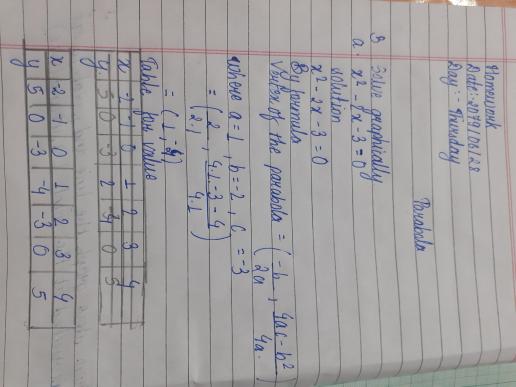 Homework
Date:- 2079/06/28
Day:- Thursday
Parabola
3 Solve graphically
a. x² - 2x - 3 = 0
solution
x² - 2x - 3 = 0
By formula
Vertex of the parabola = (-b/2a, 4ac - b²/4a)
where a = 1, b = -2, c = -3
= (2/2.1, 4.1.-3 - 4/4.1)
= (1, -4)
Table for value
x -2 -1 0 1 2 3 4
y. 5 0 -3 2 0 5
x -2 -1 0 1 2 3 4
y 5 0 -3 -4 -3 0 5